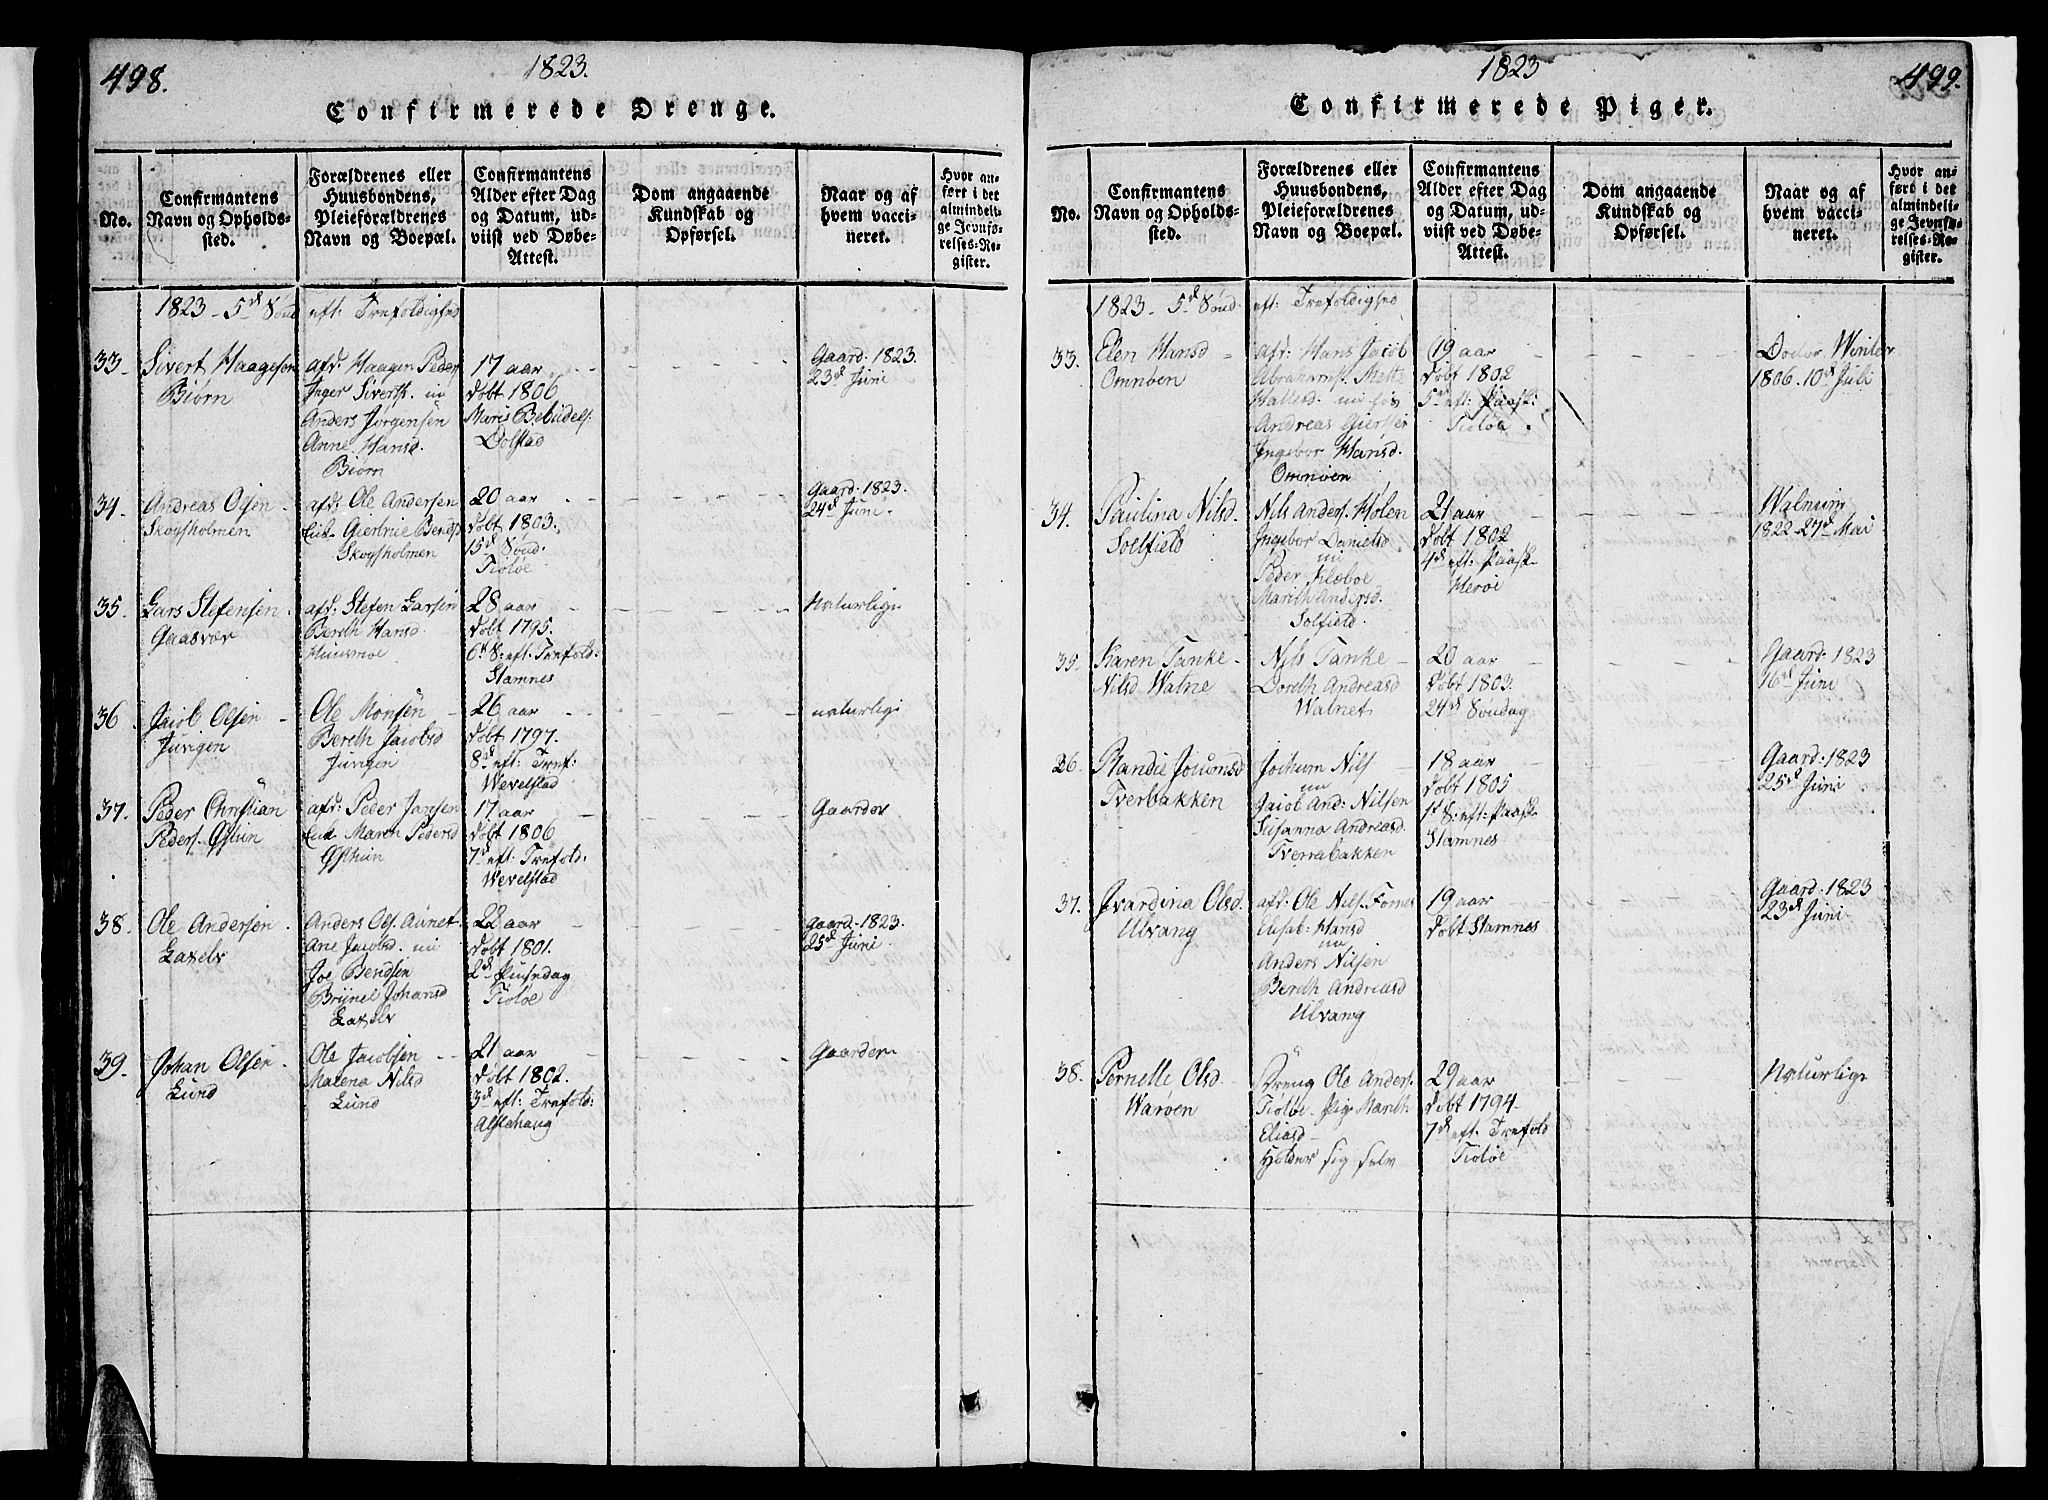 498.
1823.
Confirmerede Drenge.
No.
Confirmantens
Navn og Opholds-
sted.
Forældrenes eller
Huusbondens,
Pleieforældrenes
Navn og Boepæl.
Confirmantens
Alder efter Dag
og Datum, ud-
viist ved Døbe-
Attest.
Dom angaaende
Kundskab og
Opførsel.
Naar og af
hvem vacci-
neret.
Hvor an-
ført i det
almindeli-
ge Jevnfø-
relses-Re-
gister.
1823 - 5d Sønd eft: Trefoldighed
33
Sivert Haagesen
Biørn
afd: Haagen Peders
Inger Sivertsd. nu
Anders Jørgensen
Anne Hansd.
Biørn
17 aar
døbt 1806
Maris Bebudels:
Dolstad
Gaard: 1823.
23d Juni
34.
Andreas Olsen
Skogsholmen
afd: Ole Andersen
Enk- Giertrue Bendsd
Skogsholmen
20 aar
døbt 1803.
15d Sønd:
Tiøtøe
Gaard: 1823.
24d Juni.
35.
Lars Stefensen
Gaasvær
afd: Stefen Larsen
Bereth Hansd.
Huusmoe
28 aar
døbt 1795.
6d S: eft: Trefold:
Stamnes
Naturlige
36.
Jacob Olsen
Jurigen
Ole Monsen
Bereth Jacobsd
Jurigen
26 aar
døbt 1797.
8d eft: Tref:
Wevelstad
naturlig
37.
Peder Christian
Peders. Østhun
afd: Peder Jansen
Enk- Maren Pedersd
Østhun
17 aar
døbt 1806
7d eft: Trefold:
Wevelstad
Gaarder
38.
Ole Andersen
Laxelv
Anders Ols. Aunet
Ane Jacobsd. nu
Joe Bendsen
Brynel Johansd
Laxelv
22 aar
døbt 1801.
2d Pinsedag
Tiøtøe
Gaard: 1823.
25d Juni
39.
Johan Olsen
Lund
Ole Jacobsen
Malena Nilsd
Lund
21 aar
døbt 1802.
3d eft: Trefold:
Alstahaug
Gaarder
1823
499.
Confirmerede Piger.
No.
Confirmantens
Navn og Opholds-
sted.
Forældrenes eller
Huusbondens,
Pleieforældrenes
Navn og Boepæl.
Confirmantens
Alder efter Dag
og Datum, ud-
viist ved Døbe-
Attest.
Dom angaaende
Kundskab og
Opførsel.
Naar og af
hvem vacci-
neret.
Hvor an-
ført i det
almindeli-
ge Jevnfø-
relses-Re-
gister.
1823 - 5d Sønd. eft: Trefoldighed
33.
Elen Hansd
Omnøen
afd: Hans Jacob
Abrahams. Mette
Hallesd. nu hos
Andreas Giertsen
Ingebor Hansd.
Omnøen
19 aar
døbt 1802
5d eft: Paask:
Tiøtøe
Doctor Winter
1806. 10d Juli
34.
Paulina Nilsd.
Solfield
Nils Anders. Holen
Ingebor Danielsd
nu
Peder Klæboe
Mareth Andersd.
Solfield
21 aar
døbt 1802
4d eft: Paask-
Herøi
Walnum
1822 27d Mai
35.
Karen Tanke
Nilsd Walne
Nils Tanke
Doreth Andreasd
Walnet
20 aar
døbt 1803.
24d Søndag
Gaard: 1823
16d Juni
26.
Randie Jocumsd
Tverbakken
Jochum Nils
nu
Jacob And: Nilsen
Susanna Andreasd.
Tverrabakken
18 aar
døbt 1805
1d S: eft: Paask-
Stamnes
Gaard: 1823
25d Juni
37.
Ivardina Olsd.
Ulvang
afd: Ole Nils. Fornes
Elisab: Hansd
nu
Anders Nilsen
Bereth Andreasd
Ulvang
19 aar
døbt Stamnes
Gaard: 1823
23d Juni
38.
Pernelle Olsd.
Warøen
Dreng Ole Anders.
Tiøtøe. Pig: Mareth
Eliasd
Holder sig selv
29 aar
døbt 1794
7d eft: Trefold
Tiøtøe
Naturlige